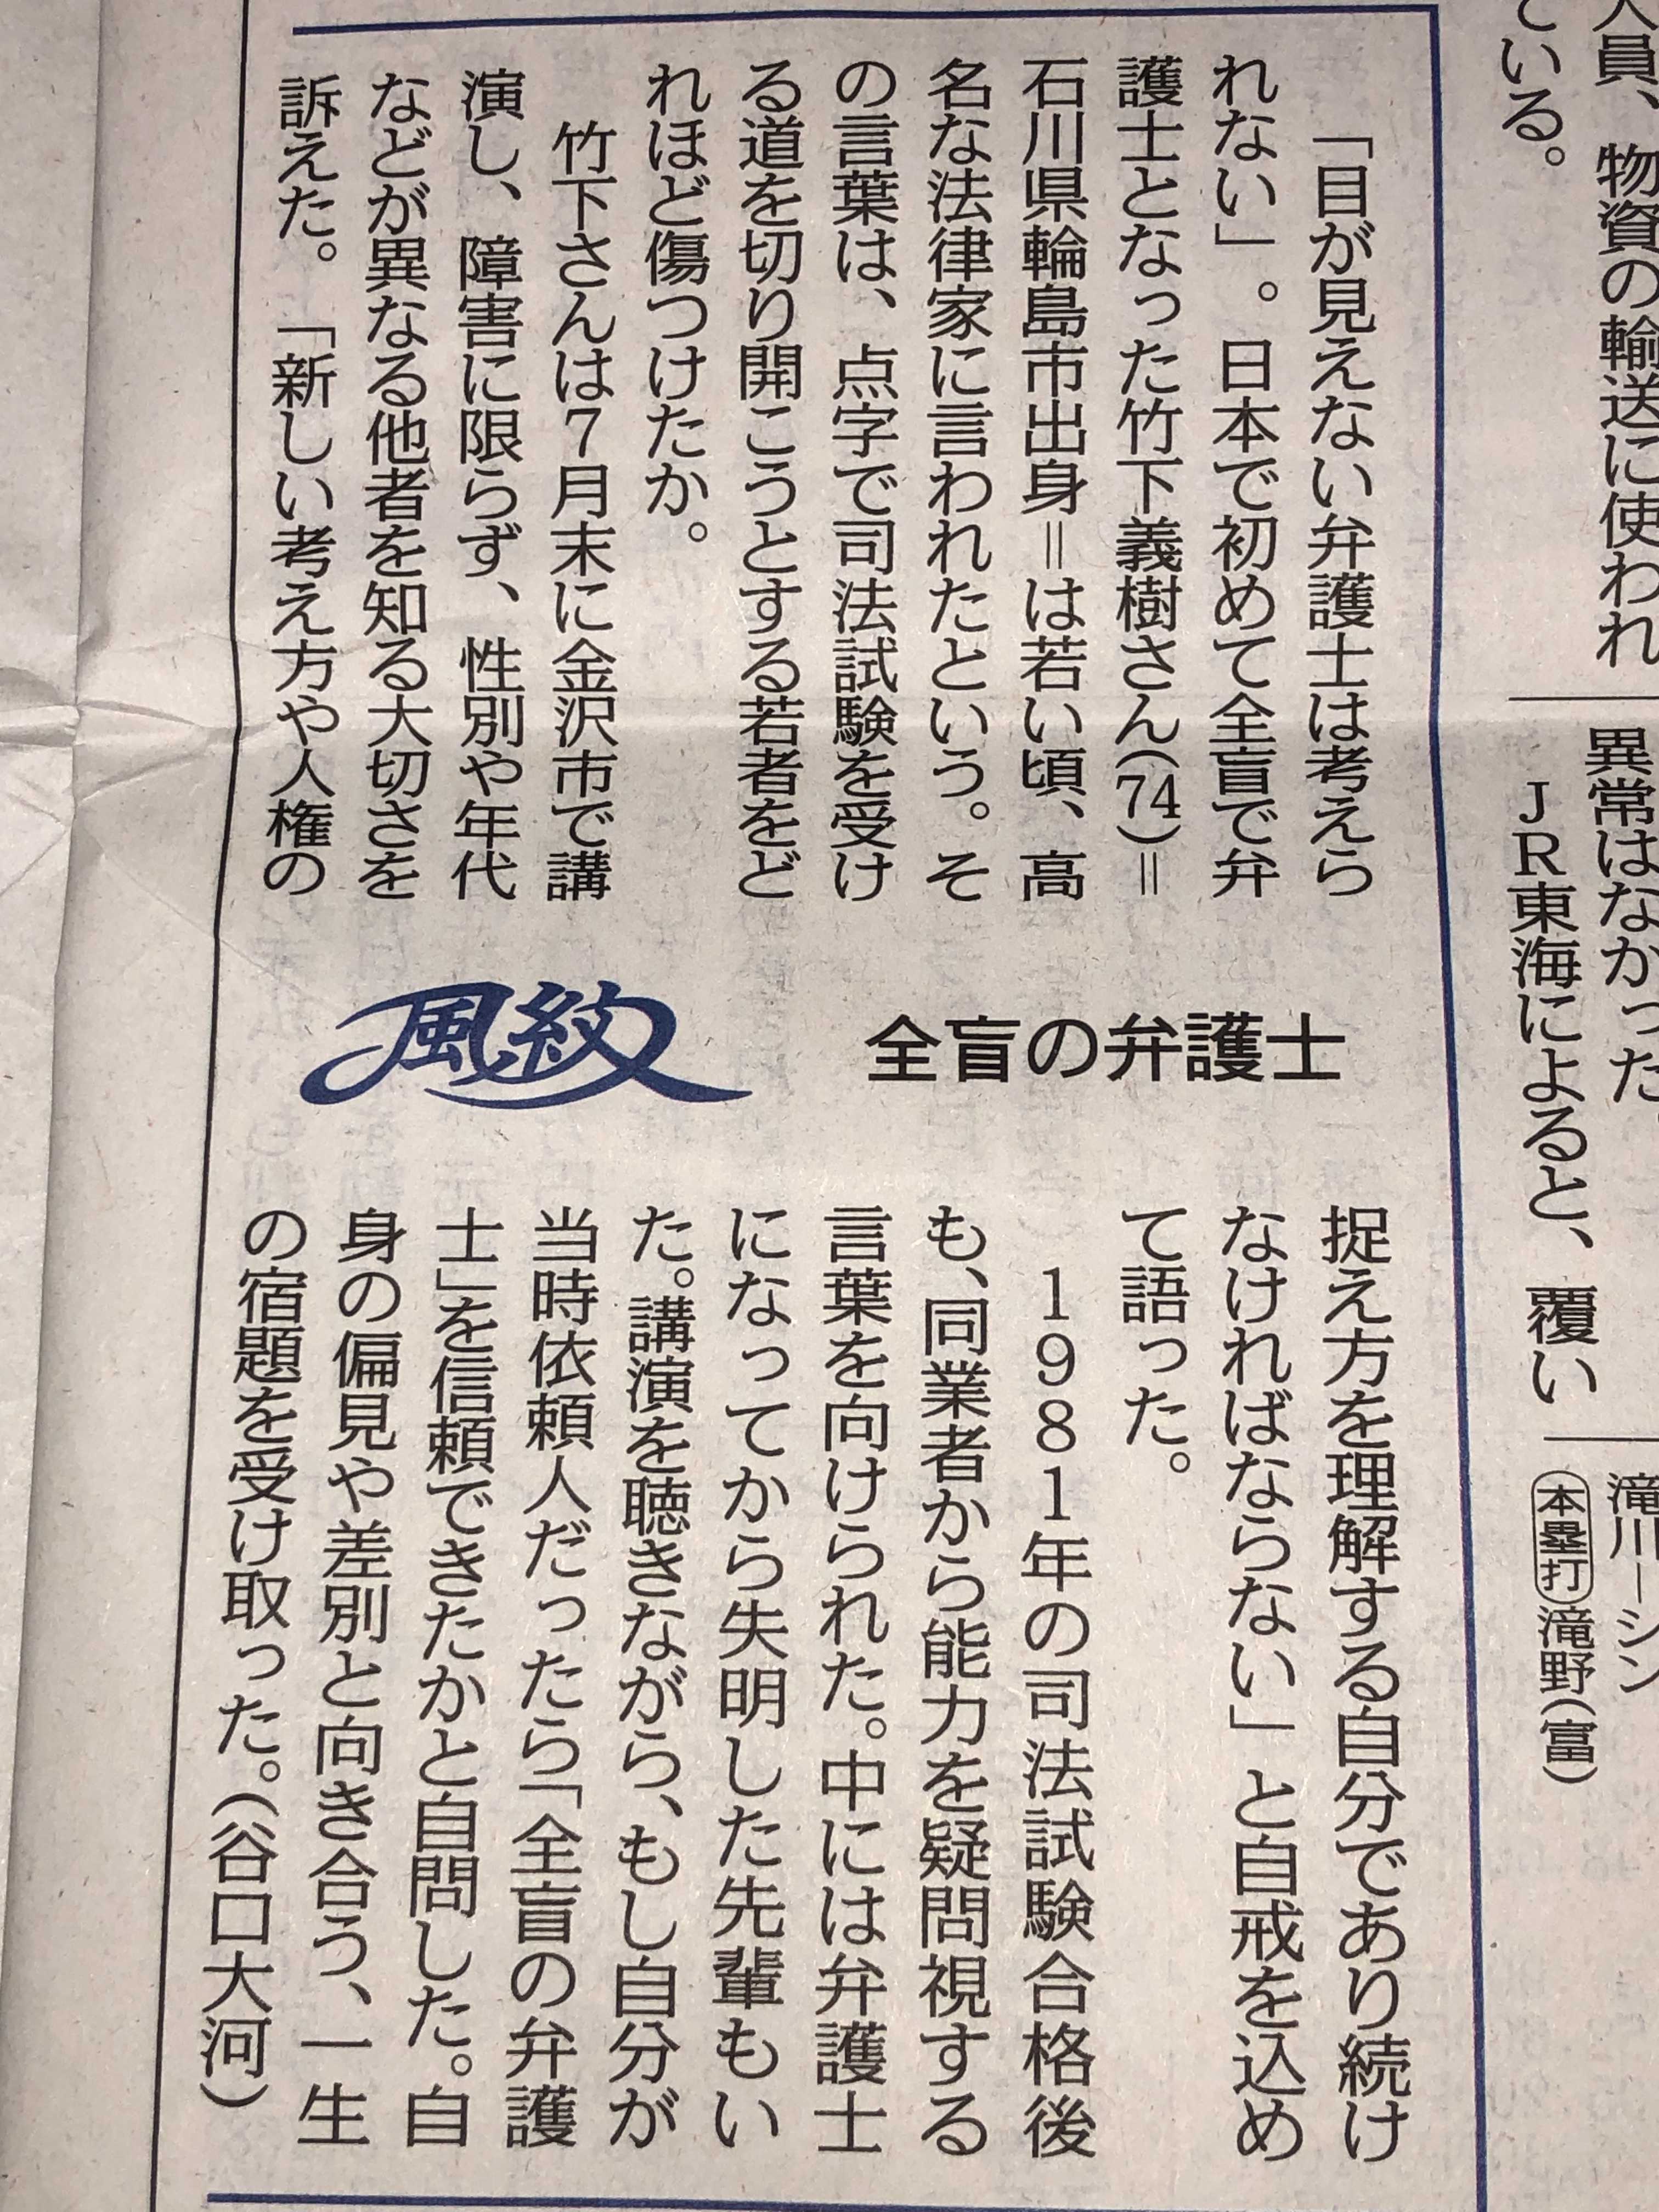 人員、物資の輸送に使われ
ている。
異常はなかった
JR東海によると、覆い
滝川―シン
本塁打滝野(富)
全盲の弁護士
風紋
「目が見えない弁護士は考えら
れない」。日本で初めて全盲で弁
護士となった竹下義樹さん(74)＝
石川県輪島市出身＝は若い頃、高
名な法律家に言われたという。そ
の言葉は、点字で司法試験を受け
る道を切り開こうとする若者をど
れほど傷つけたか。
竹下さんは7月末に金沢市で講
演し、障害に限らず、性別や年代
などが異なる他者を知る大切さを
訴えた。「新しい考え方や人権の
捉え方を理解する自分であり続け
なければならない」と自戒を込め
て語った。
1981年の司法試験合格後
も、同業者から能力を疑問視する
言葉を向けられた。中には弁護士
になってから失明した先輩もい
た。講演を聴きながら、もし自分が
当時依頼人だったら「全盲の弁護
士」を信頼できたかと自問した。自
身の偏見や差別と向き合う、一生
の宿題を受け取った。(谷口大河)